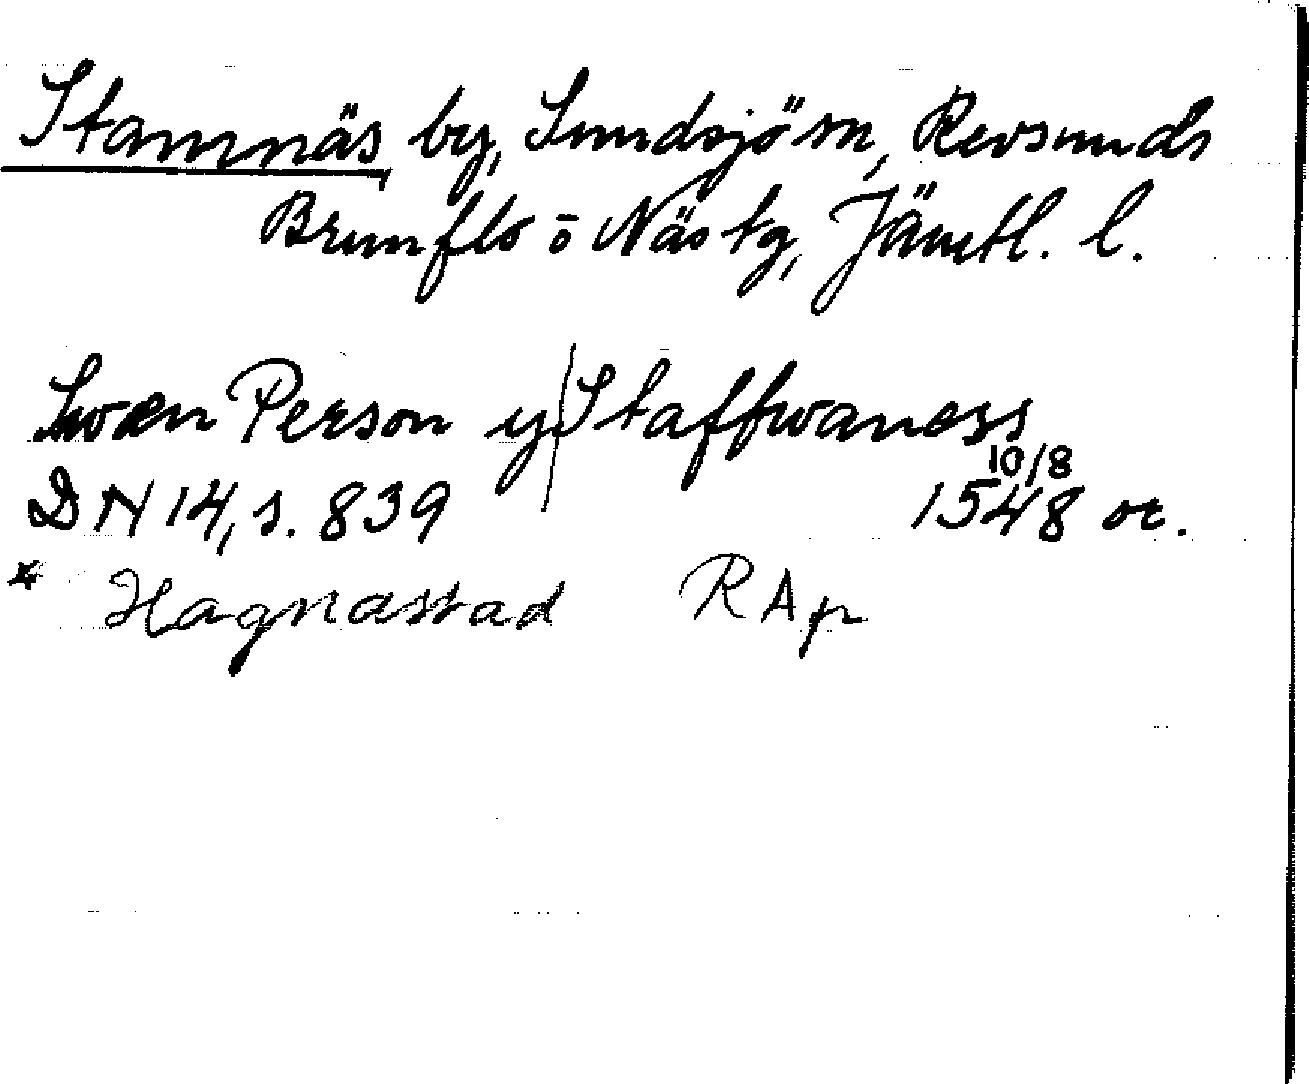 Stamnäs by, Sundsjö sn, Revsunds
Brunflo o Näs tg, Jämtl. l.
Swæn Person y/Staffwaness
DN 14, s. 839 1548 10/8 or.
* Hagnastad RAp